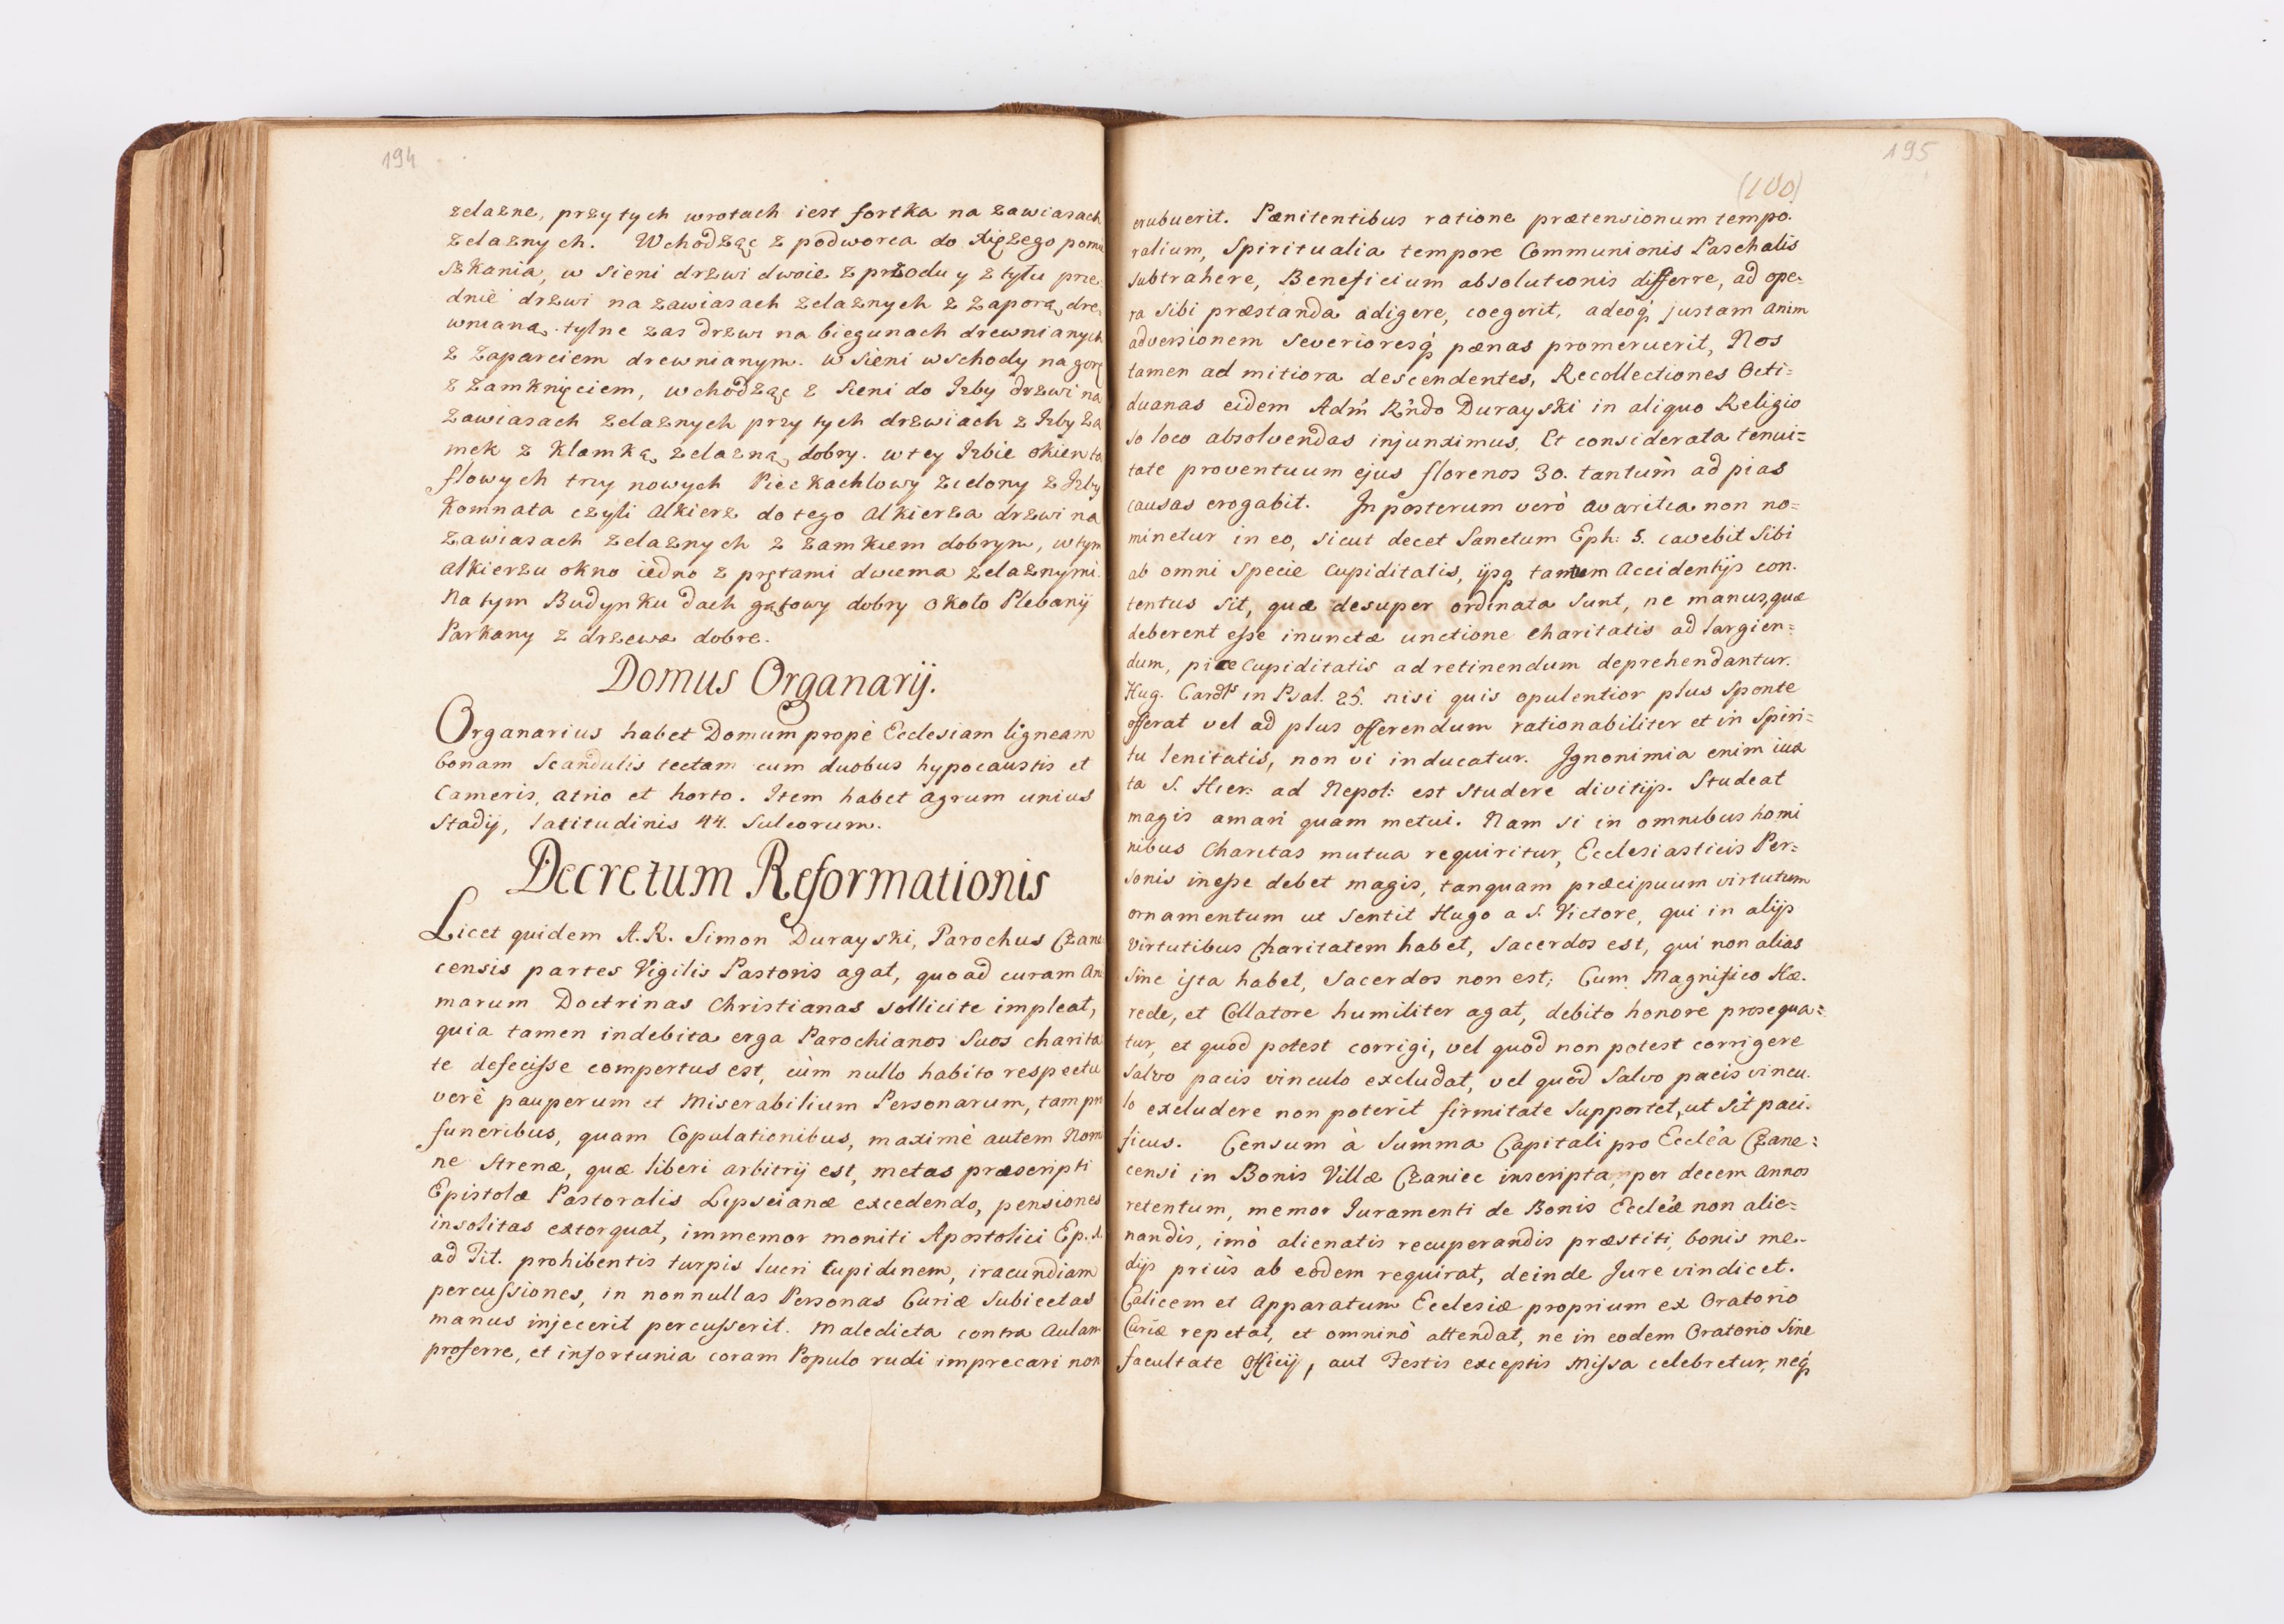 194
zelazne, przy tych wrotach iest fortka na zawiasach
zelaznych. Wchodząc z podworca do Xięzego pomie
szkania, w sieni drzwi dwoie z przodu y z tyłu prze
dnie drzwi na zawiasach zelaznych z zaporą dre,
wnianą. tylne zas drzwi na biegunach drewnianych
z zaparciem drewnianym. w sieni wschody na gorę
z zamknięciem, wchodząc z sieni do Izby drzwi na
zawiasach zelaznych przy tych drzwiach z Izby za
mek z klamką zelazną dobry. w tey Izbie okien ta
flowych trzy nowych Piec kachlowy zielony z Izby
Komnata czyli Alkierz do tego Alkierza drzwi na
zawiasach zelaznych z zamkiem dobrym, w tym
alkierzu okno iedno z prętami dwiema zelaznymi.
Na tym Budynku dach gątowy dobry około Plebanij
Parkany z drzewa dobre.
Domus Organarij.
Organarius habet Domum propè Ecclesiam ligneam
bonam Scandulis tectam cum duobus hypocaustis et
Cameris, atrio et horto. Item habet agrum unius
Stadij, latitudinis 44. Sulcorum.
Decretum Reformationis
Licet quidem A.R. Simon Durayski, Parochus Czane
censis partes Vigilis Pastoris agat, quo ad curam Ani
marum Doctrinas Christianas sollicite impleat,
quia tamen indebita erga Parochianos Suos charita
te defecisse compertus est, cùm nullo habito respectu
verè pauperum et Miserabilium Personarum, tam pro
funeribus, quam Copulationibus, maximè autem Nomi
ne Strenæ, quæ liberi arbitrij est, metas præscripti
Epistolæ Pastoralis Lipscianæ excedendo, pensiones
insolitas extorquat, immemor moniti Apostolici Ep. 1.
ad Tit. prohibentis turpis lucri Cupidinem, iracundiam
percussiones, in nonnullas Personas Curiæ Subiectas
manus injecerit percusserit. Maledicta contra Aulam
proferre, et infortunia coram Populo rudi imprecari non
195
(100)
erubuerit. Pænitentibus ratione prætensionum tempo.
ralium, Spiritualia tempore Communionis Paschalis
subtrahere, Beneficium absolutionis differre, ad ope-
ra sibi præstanda adigere, coegerit, adeoq́ justam anim
adversionem severioresq́ pænas promeruerit, Nos
tamen ad mitiora descendentes, Recollectiones Octi=
duanas eidem Adm̃ R̃ndo Durayski in aliquo Religio
so loco absolvendas injunximus, Et considerata tenui=
tate proventuum ejus florenos 30. tantum̀ ad pias
causas erogabit. In posterum verò avaritia non no=
minetur in eo, sicut decet Sanctum Eph: 5. cavebit Sibi
ab omni Specie Cupiditatis, ijsq tantum Accidentijs con.
tentus sit, quæ desuper ordinata sunt, ne manus, quæ
deberent esse inunctæ unctione Charitatis ad largien=
dum, pice Cupiditatis ad retinendum deprehendantur.
Hug. Cardls in Psal. 25. nisi quis opulentior plus Sponte
offerat vel ad plus offerendum rationabiliter et in Spiri=
tu lenitatis, non vi inducatur. Ignonimia enim iux
ta S. Hier: ad Nepot: est studere divitijs. Studeat
magis amari quam metui. Nam si in omnibus homi
nibus Charitas mutua requiritur, Ecclesiasticis Per=
sonis inesse debet magis, tanquam præcipuum virtutum
ornamentum ut sentit Hugo a S. Victore, qui in alijs
virtutibus Charitatem habet, Sacerdos est, qui non alias
sine ista habet, Sacerdos non est; Cum Magnifico Hæ.
rede, et Collatore humiliter agat, debito honore prosequa=
tur, et quod potest corrigi, vel quod non potest corrigere
salvo pacis vinculo excludat, vel quod salvo pacis vincu.
lo excludere non poterit firmitate supportet, ut sit paci.
ficus. Censum à Summa Capitali pro Eccl̃a Czane=
censi in Bonis Villæ Czaniec inscripta, per decem annos
retentum, memor Iuramenti de Bonis Eccl̃æ non alie=
nandis, imò alienatis recuperandis præstiti, bonis me-
dijs priùs ab eodem requirat, deinde Jure vindicet.
Calicem et Apparatum Ecclesiæ proprium ex Oratorio
Curiæ repetat, et omninò attendat, ne in eodem Oratorio sine
facultate Officij, aut Festis exceptis Missa celebretur, neq́